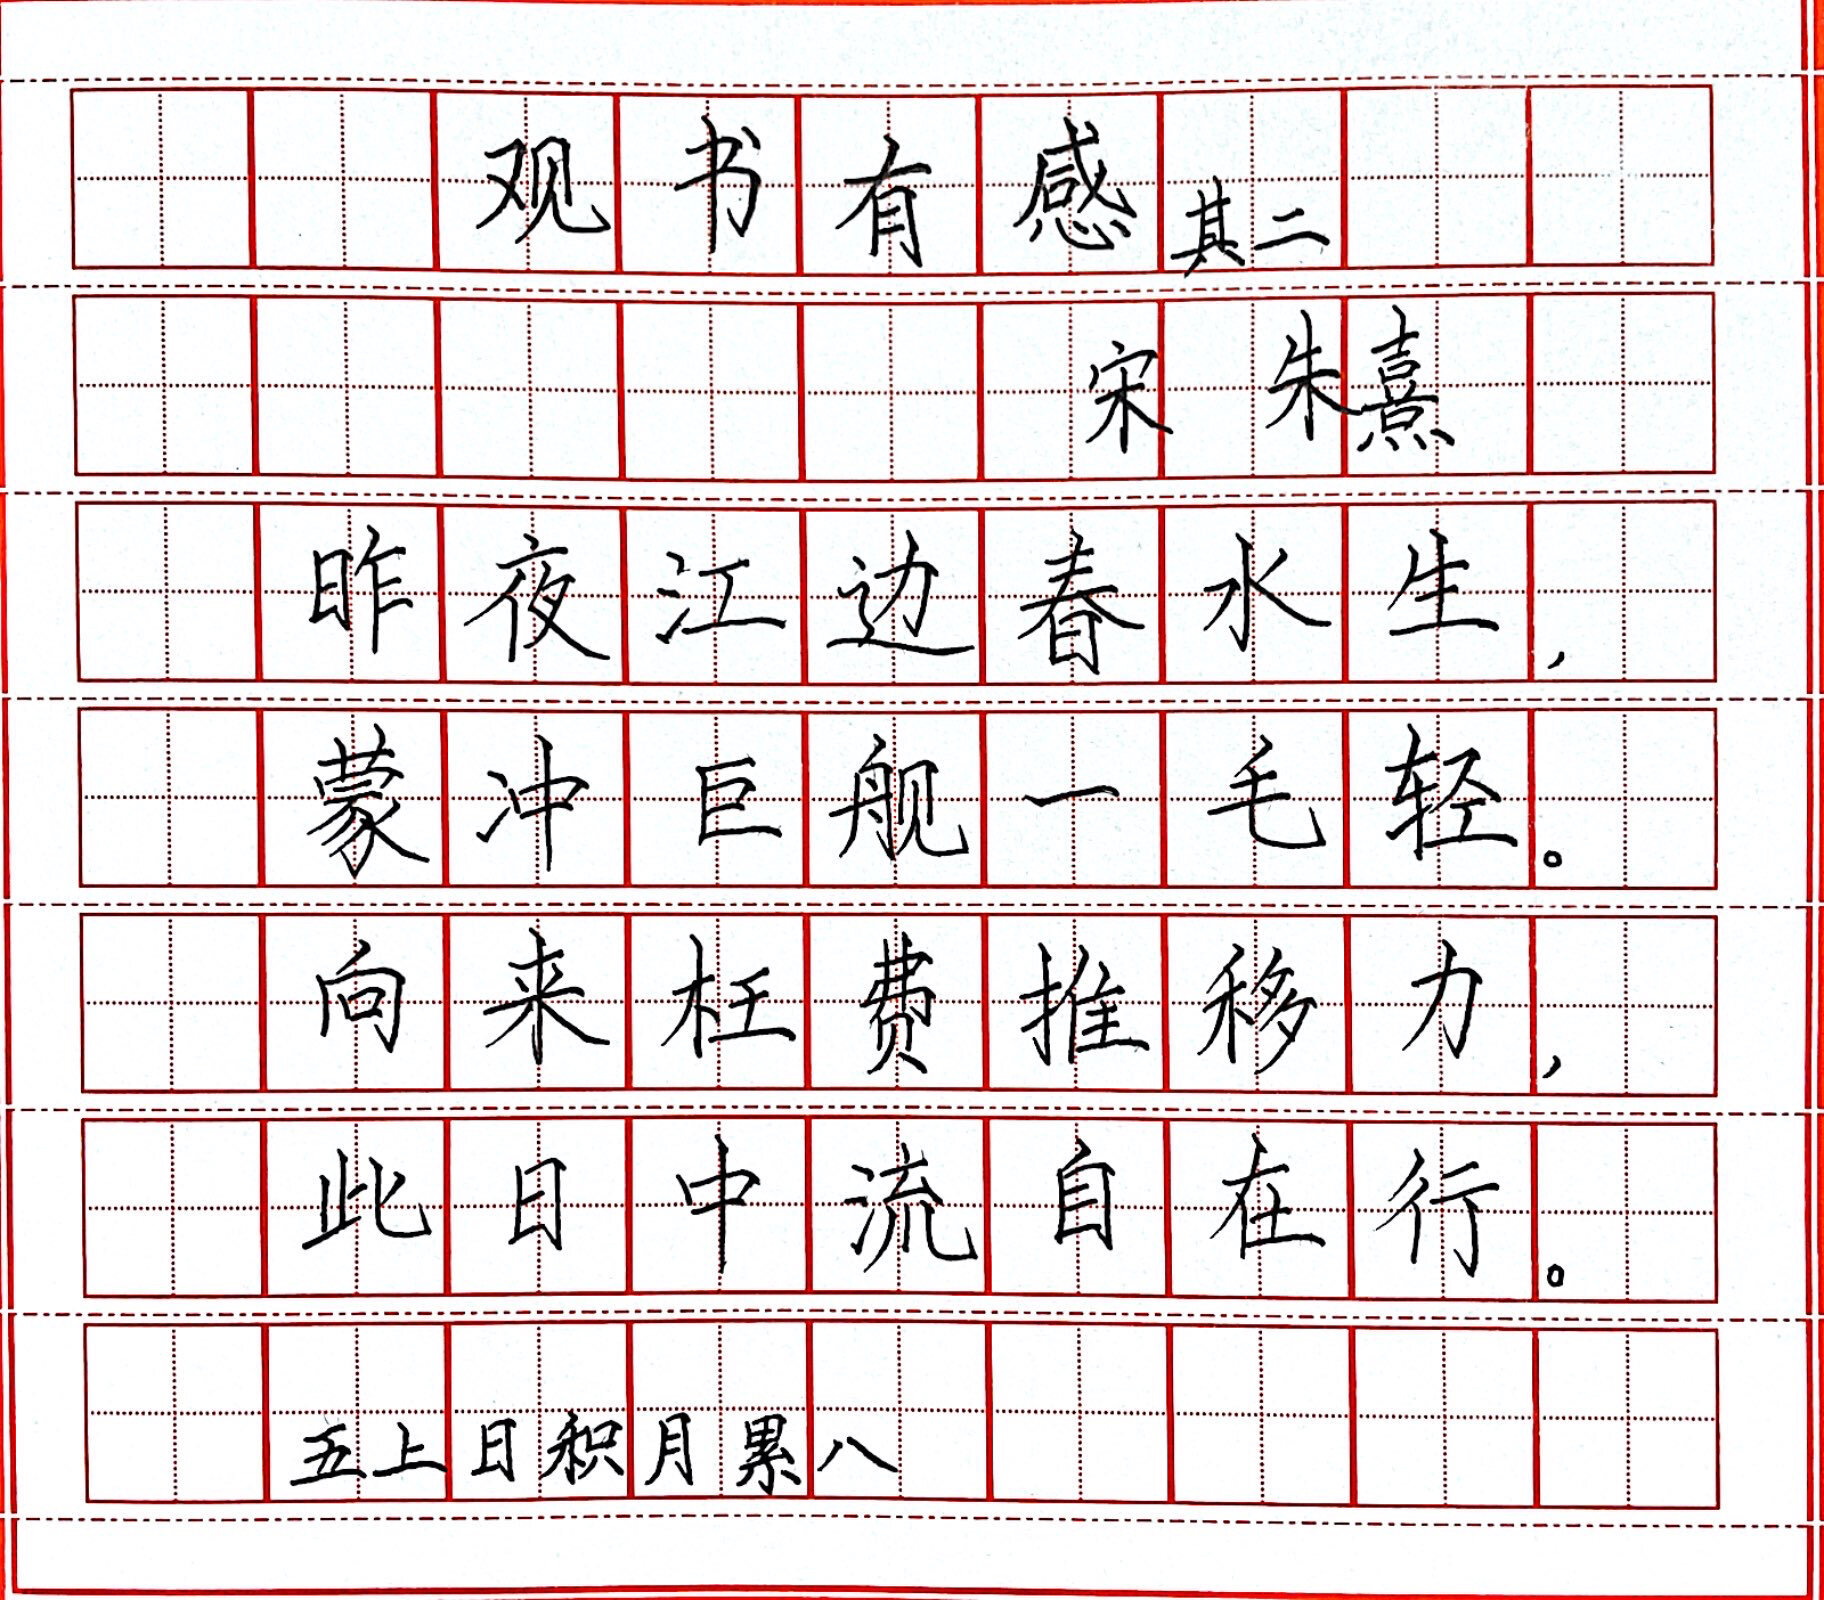 观书有感 其二
宋 朱熹
昨夜江边春水生，
蒙冲巨舰一毛轻。
向来枉费推移力，
此日中流自在行。
五上日积月累八